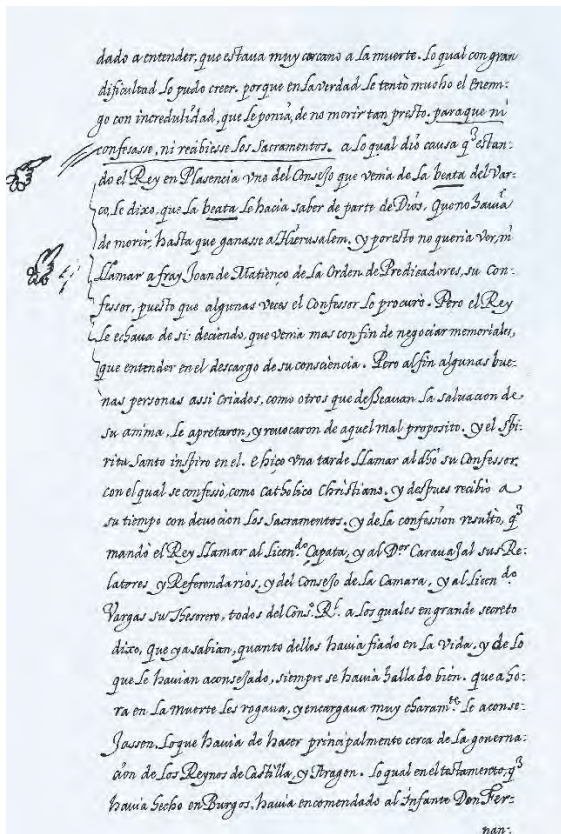 dado a entender, que estava muy cercano a la muerte. Lo qual con gran
dificultad lo pudo creer. porque en la verdad le tentò mucho el Enem:
go con incredulidad, que le ponia, de no morir tan presto. para que ni
confesasse, ni recibiesse los Sacramentos. a lo qual diò causa q̃ estan:
do el Rey en Plasencia vno del Consejo que venia de la beata del Var:
co, le dixo, que la beata le hacia saber de parte de Dios, Que no havia
de morir, hasta que ganasse a Hierusalem. y por esto no queria ver, ni
llamar a fray Joan de Matienço de la Orden de Predicadores, su Con:
fessor, puesto que algunas veces el Confessor lo procuro. Pero el Rey
le echava de si: deciendo, que venia mas con fin de negociar memoriales,
que entender en el descargo de su consciencia. Pero al fin algunas bue:
nas personas assi criados, como otros que desseavan la salvacion de
su anima, le apretaron, y revocaron de aquel mal proposito. y el Spi:
ritu Santo inspiro en el. e hiço vna tarde llamar al dho su Confessor,
con el qual se confessò, como catholico Christiano. y despues recibio a
su tiempo con devocion los Sacramentos. y de la confession resultò, q̃
mandò el Rey llamar al Licen.do Çapata, y al D.or Caravajal sus Re:
latores, y Referendarios, y del Consejo de la Camara, y al Licen.do
Vargas su Thesorero, todos del Cons.o R.l a los quales en grande secreto
dixo, Que ya sabian, quanto dellos havia fiado en la vida. y de lo
que le havian aconsejado, siempre se havia hallado bien. que aho:
ra en la muerte les rogava, y encargava muy charam.te le aconse:
jassen, lo que havia de hacer principalmente cerca de la governa:
cion de los Reynos de Castilla, y Aragon. lo qual en el testamento, q̃
havia hecho en Burgos, havia encomendado al Infante Don Fer:
nan: